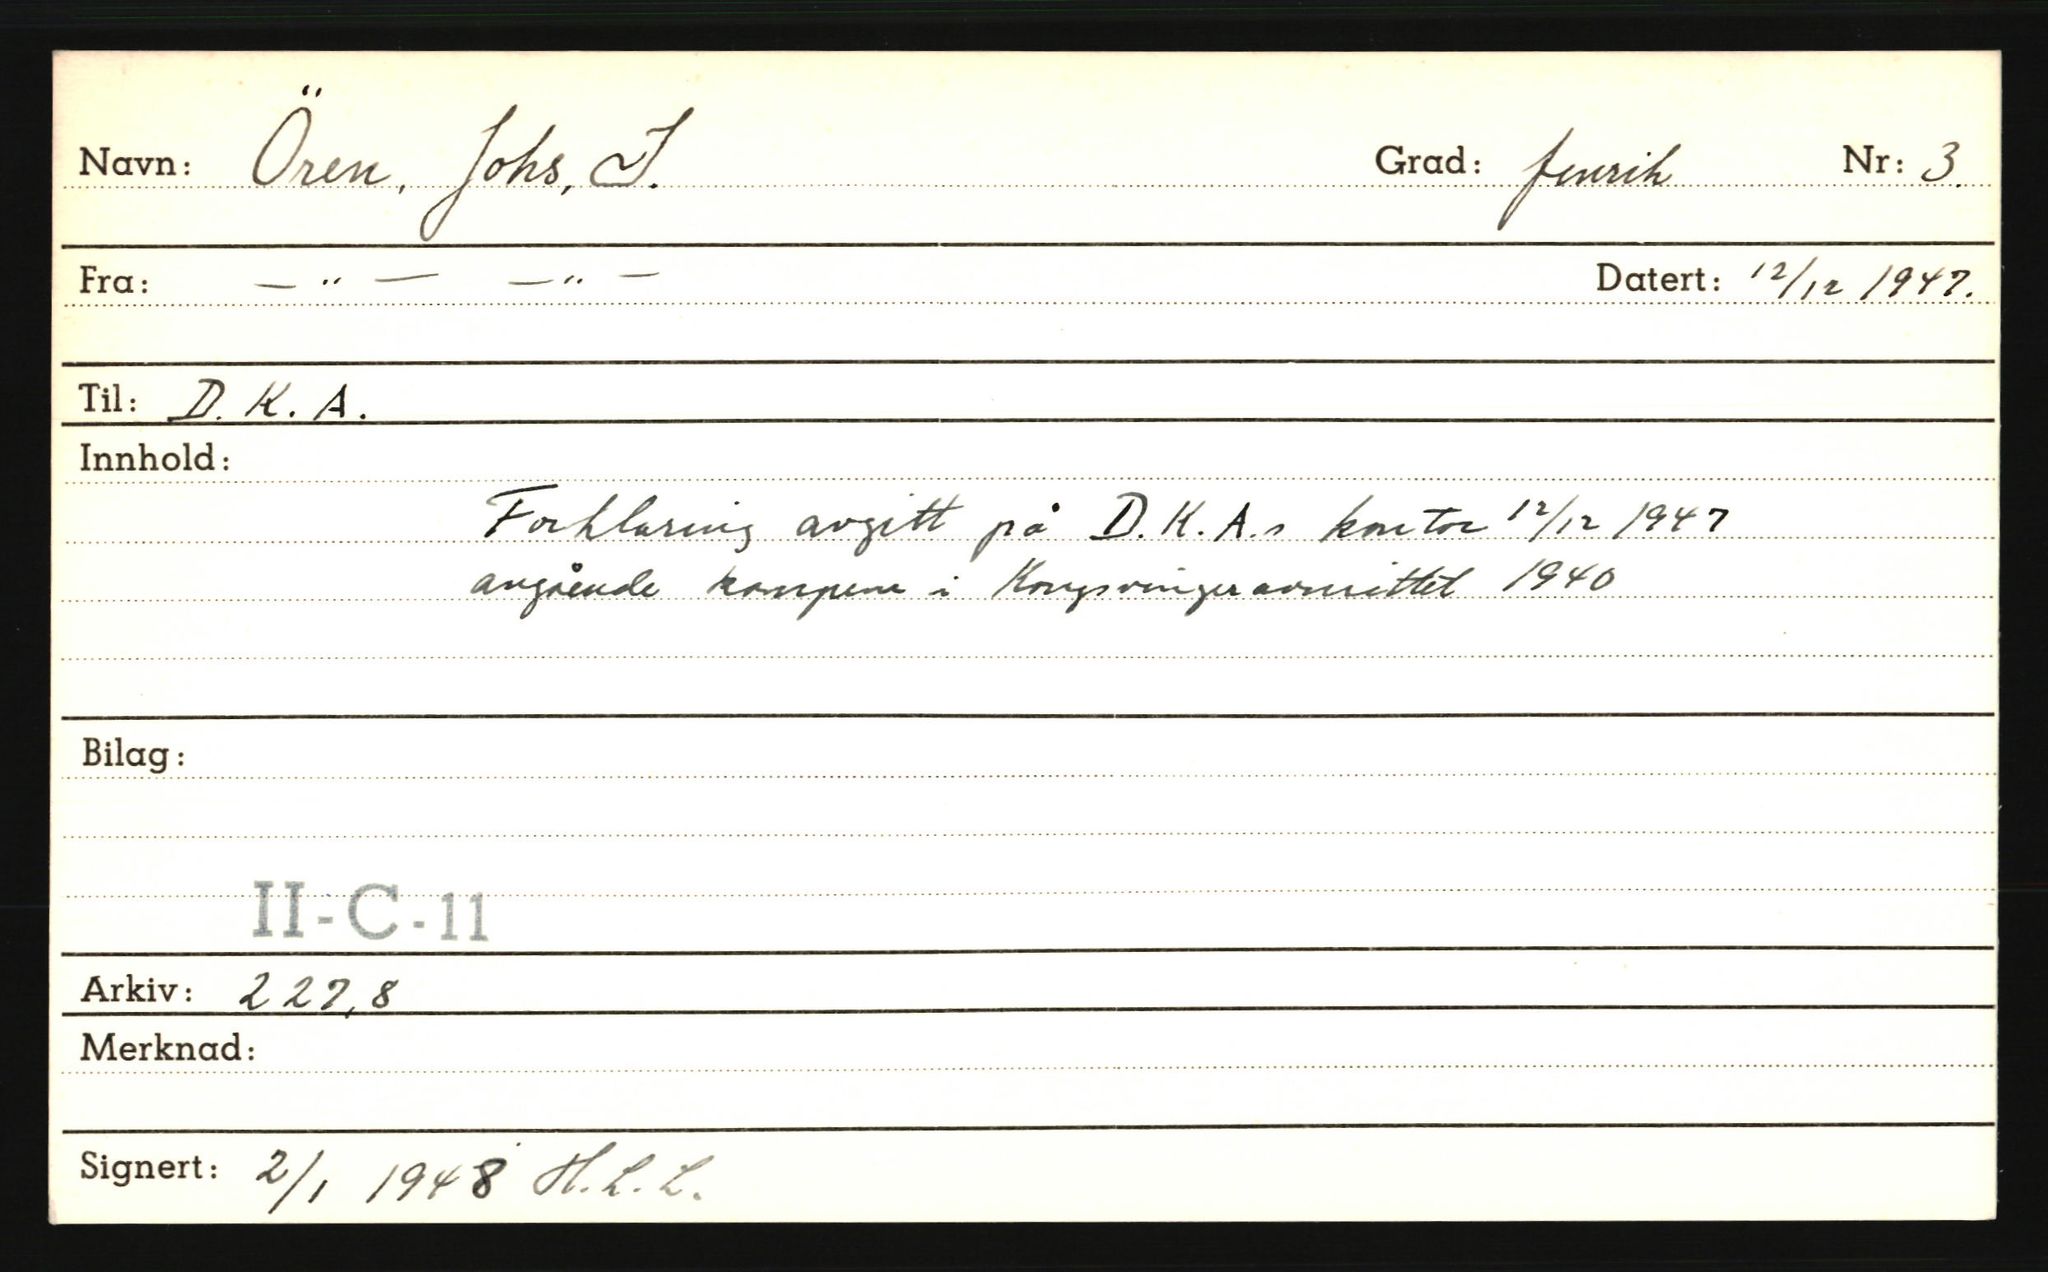 Navn: Ören, Johs, I. Grad: fenrik Nr: 3.
Fra: — " — — " — Datert: 12/12 1947.
Til: D. K. A.
Innhold:
Forklaring avgitt på D.K.A.s kontor 12/12 1947
angående kampene i Kongsvingeravsnittet 1940
Bilag:
II-C-11
Arkiv: 227,8
Merknad:
Signert: 2/1 1948 H.L.L.